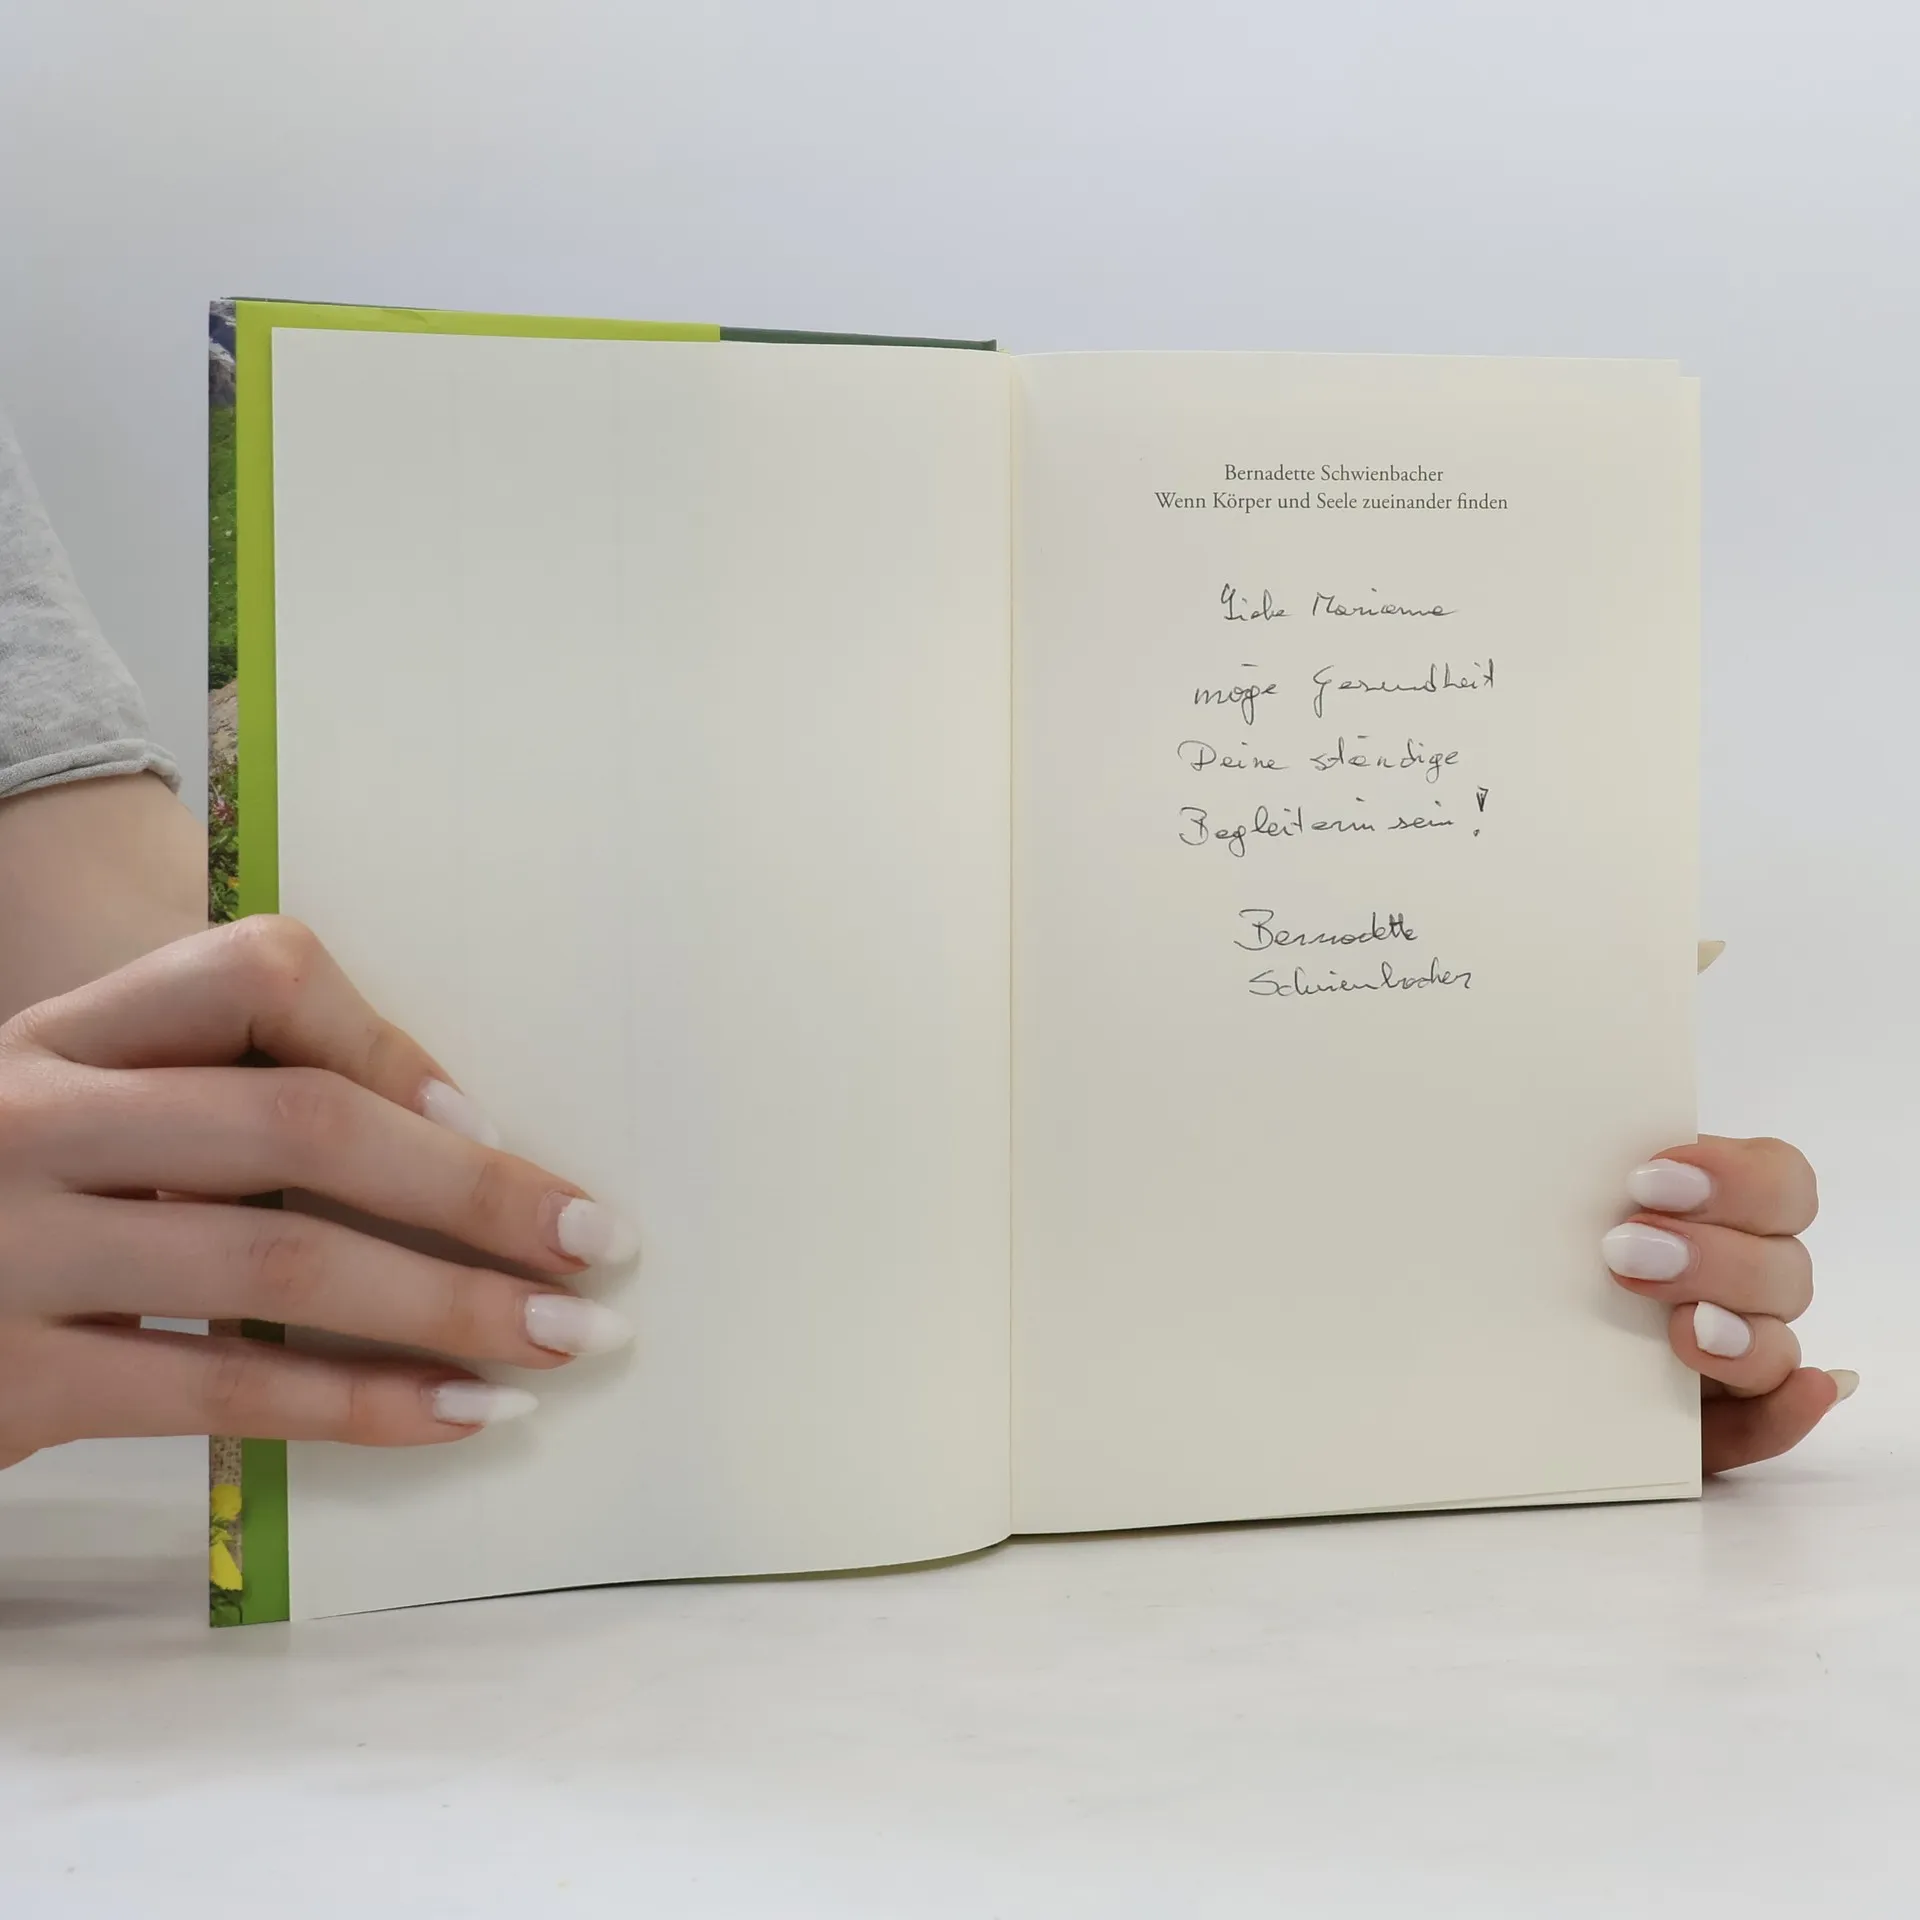 Bernadette Schwienbacher
Wenn Körper und Seele zueinander finden
Liebe Marianne
möge Gesundheit
Deine ständige
Begleiterin sein!
Bernadette
Schwienbacher